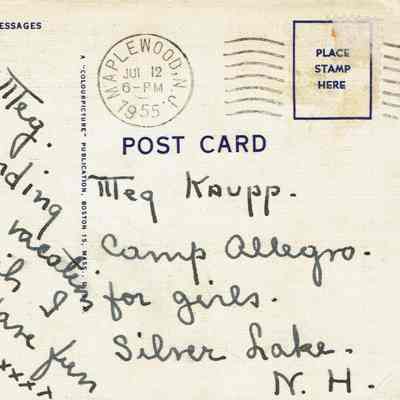 ESSAGES
Meg.
nding
vacation
I
have fun
xxxx
A "COLOURPICTURE" PUBLICATION, BOSTON 15, MASS.
MAPLEWOOD, N.J.
JUL 12
6-PM
1955
PLACE
STAMP
HERE
POST CARD
Meg Kaupp.
Camp Allegro.
for girls.
Silver Lake.
N. H.